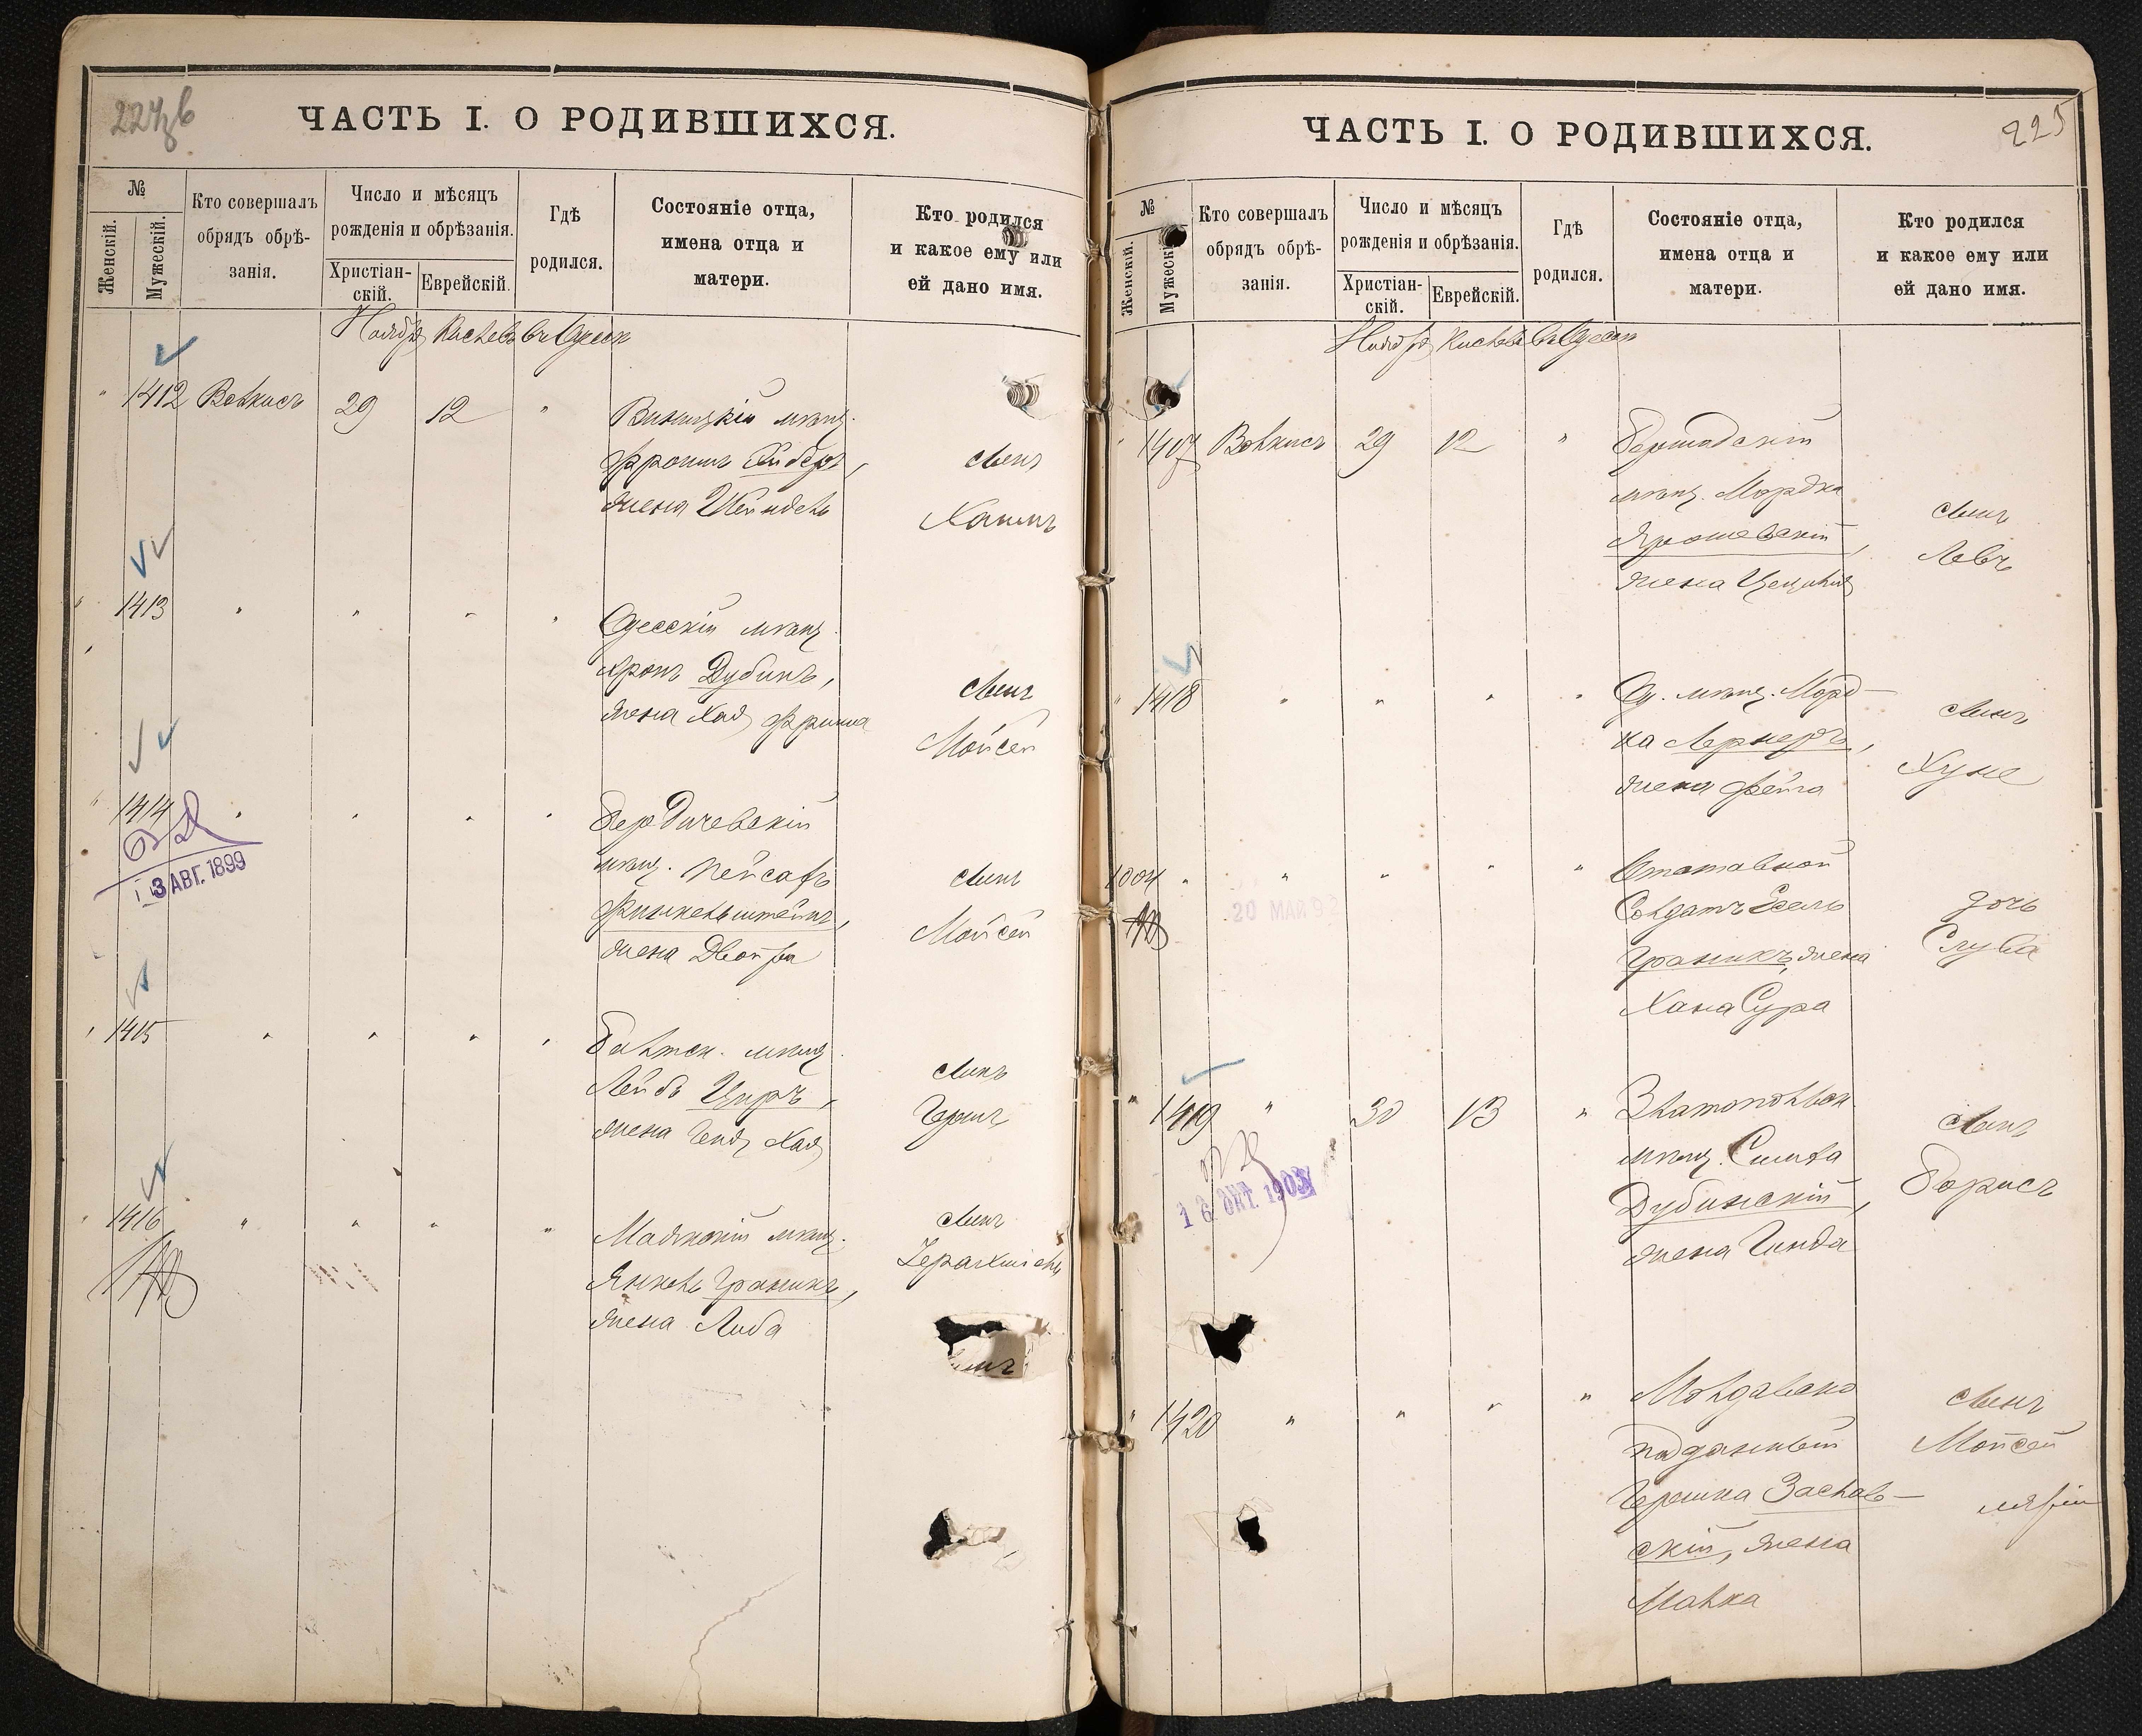 ЧАСТЬ I. О РОДИВШИХСЯ.
№
Женскій.
Мужескій.
Кто совершалъ
обрядъ обрѣ-
занія.
Число и мѣсяцъ
рожденія и обрѣзанія.
Христіан-
скій.
Еврейскій.
Гдѣ
родился.
Состояніе отца,
имена отца и
матери.
Кто родился
и какое ему или
ей дано имя.
Ноябрь Кислевъ въ Одессѣ
1412 Волкисъ 29 12 "
Винницкій мѣщ.
Фроимъ
жена Шейндель
сынъ
Хаимъ
1413 " " " "
Одесскій мѣщ.
Аронъ Дубинъ,
жена Хая Фрима
сынъ
Мойсей
1414 " " " "
Бердичевскій
мѣщ. Пейсахъ
Финкельштейнъ,
жена Двойра
сынъ
Мойсей
13 АВГ. 1899
1415 " " " "
Балтск. мѣщ.
Лейбъ Циръ,
жена Геня Хая
сынъ
Гершъ
1416 " " " "
Маякскій мѣщ.
Янкель Граникъ,
жена Люба
сынъ
Іерахміель
ЧАСТЬ I. О РОДИВШИХСЯ.
225
№
Женскій.
Мужескі
Кто совершалъ
обрядъ обрѣ-
занія.
Число и мѣсяцъ
рожденія и обрѣзанія.
Христіан-
скій.
Еврейскій.
Гдѣ
родился.
Состояніе отца,
имена отца и
матери.
Кто родился
и какое ему или
ей дано имя.
Ноябрь Кислевъ въ Одессѣ
1417 Волкисъ 29 12 "
Бершадскій
мѣщ. Мордко
Ярошевскій,
жена
сынъ
Левъ
1418 " " " "
Од. мѣщ. Морд-
ка Лернеръ,
жена Фейга
сынъ
Хуне
1004 " " " " "
Отставной
Солдатъ Іосель
Граникъ, жена
Хана Сура
дочь
Слува
20 МАЙ 92
" 1419 " 30 13 "
Златопольск.
мѣщ. Симха
Дубинскій,
жена Гинда
сынъ
Борисъ
16 ОКТ. 1903
" 1420 " " " "
Молдавско
подданный
Гершка Заслав-
скій, жена
Малка
сынъ
Мойсей